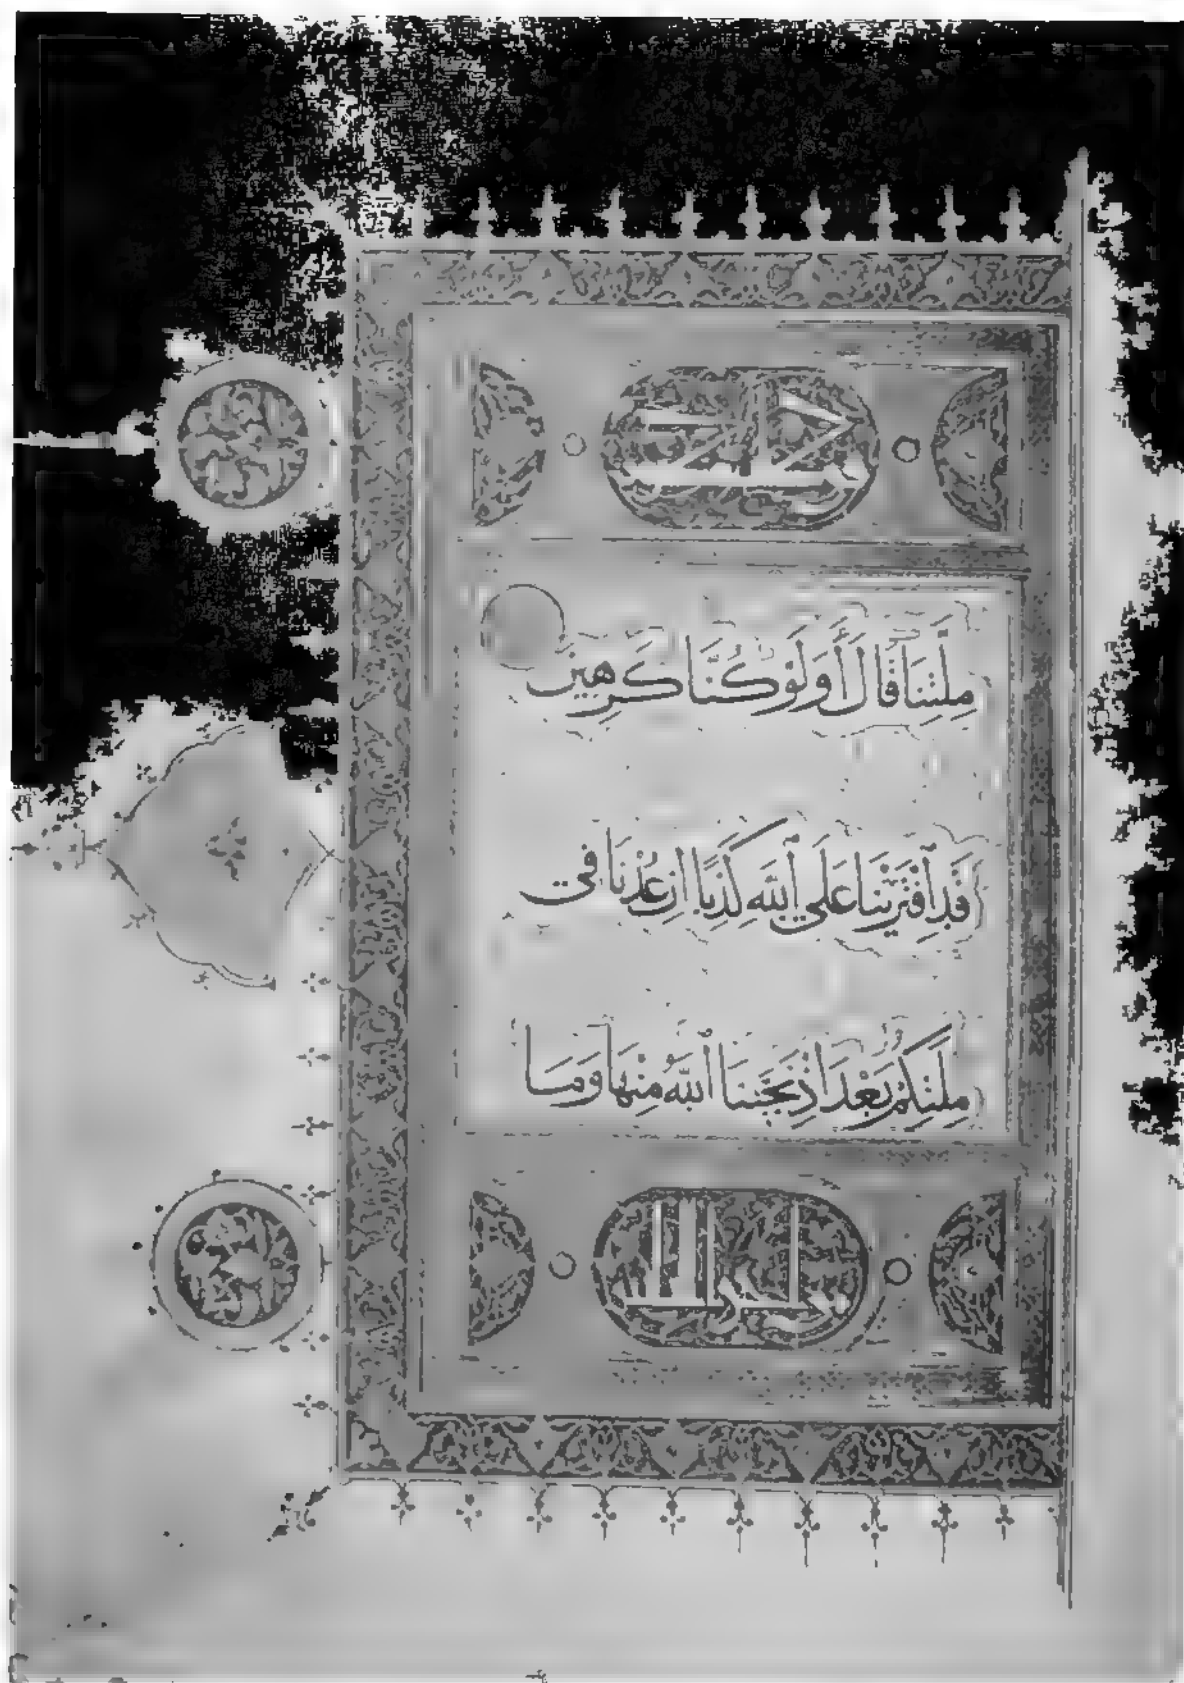 مِلَّتِنَا قَالَ أَوَلَوْ كُنَّا كَرِهِينَ
قَدِ ٱفْتَرَيْنَا عَلَى ٱللَّهِ كَذِبًا إِنْ عُدْنَا فِى
مِلَّتِكُمْ بَعْدَ إِذْ نَجَّىنَا ٱللَّهُ مِنْهَا وَمَا